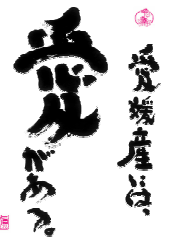 愛媛産は、
愛がある。